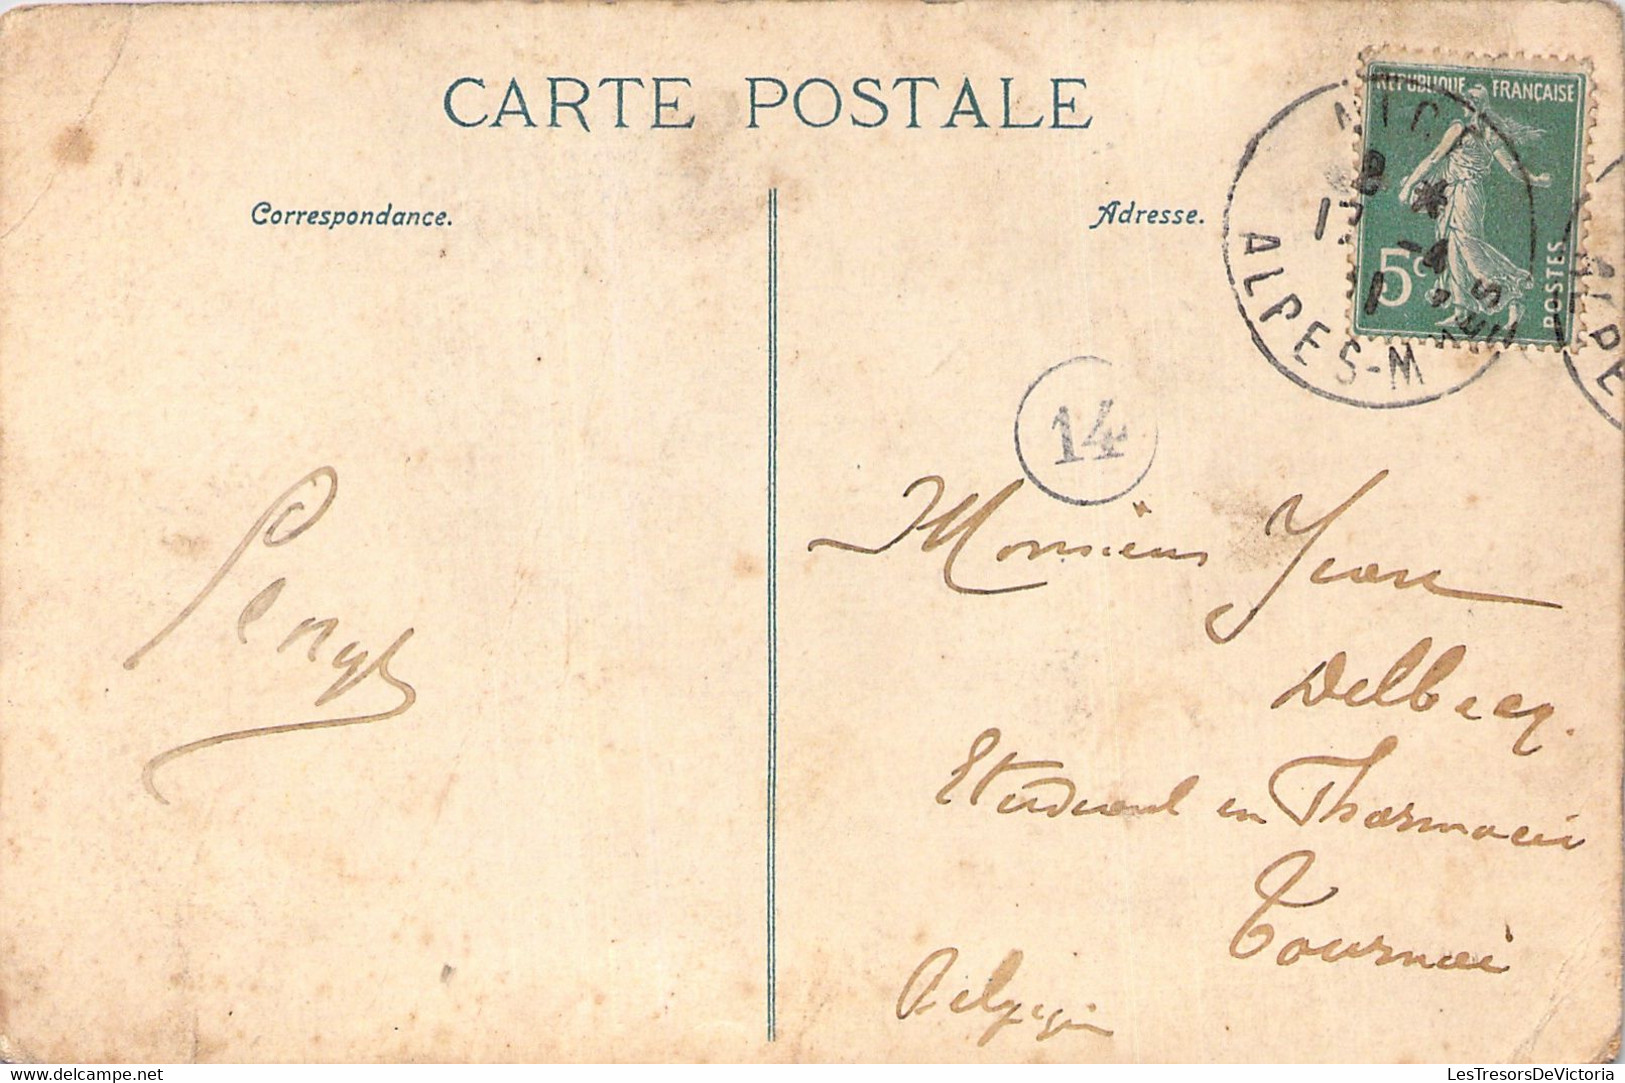 CARTE POSTALE
Correspondance.
Adresse.
REPUBLIQUE FRANÇAISE
5c
POSTES
NICE
ALPES-M
ALPE
14
Monsieur
Delbecq.
Etudiant en Pharmacie
Tournai
Belgique
www.delcampe.net
LesTresorsDeVictoria